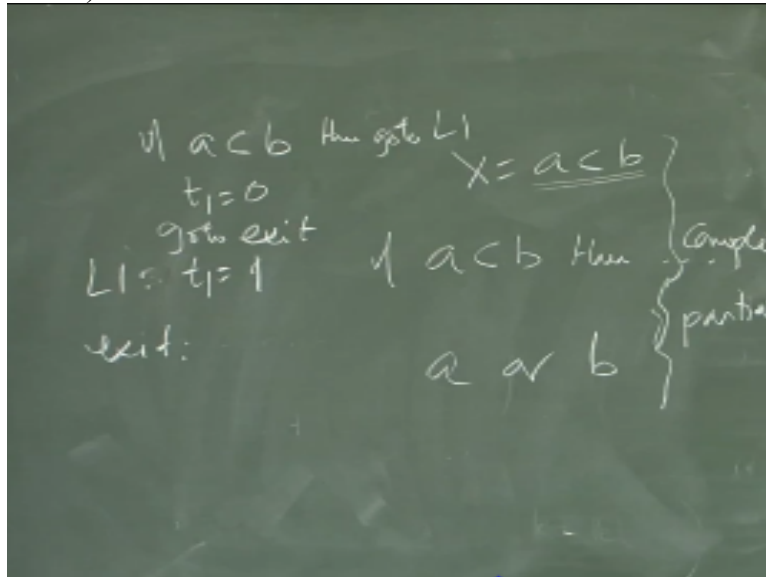 if a < b then goto L1
t1 = 0
goto exit
L1: t1 = 1
exit:
X = a < b
if a < b then ...
a or b
Comple
partia